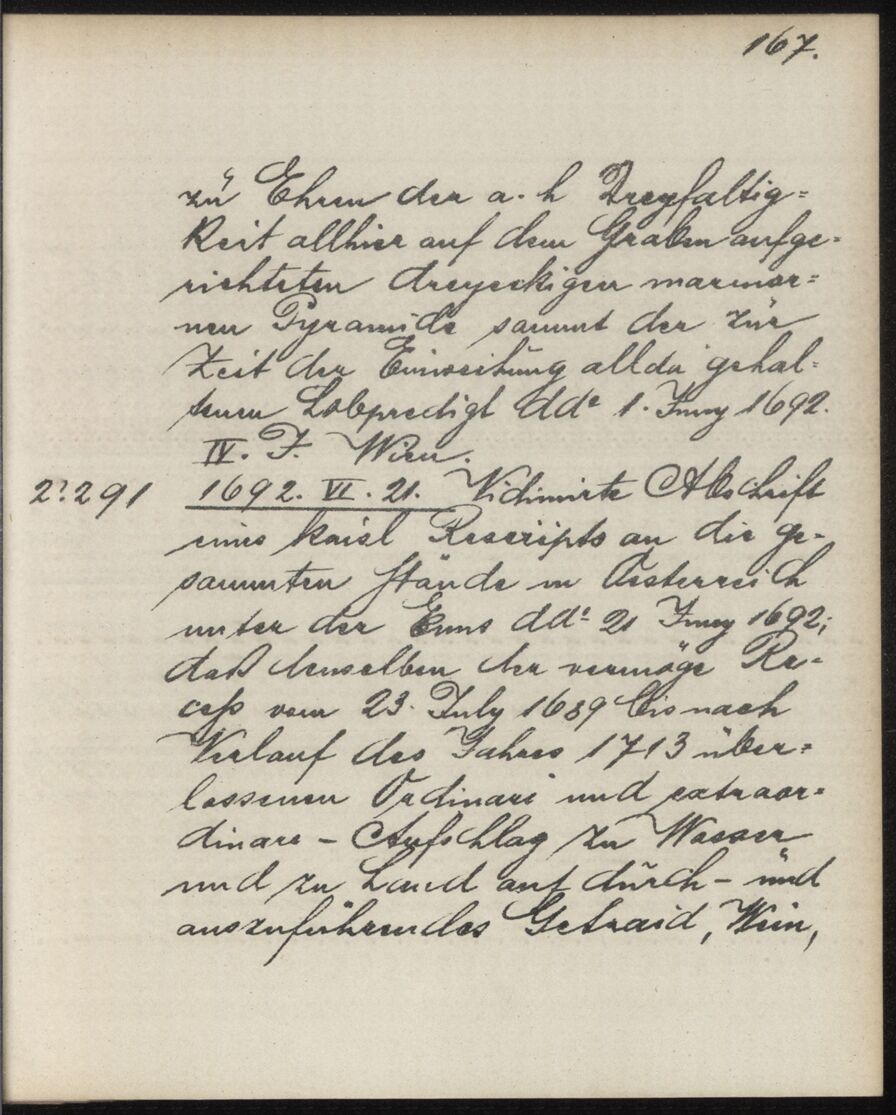 167.
zu Ehren der a. h Dreyfaltig=
keit allhier auf dem Graben aufge=
richteten dreyeckigen marmor=
nen Pyramide sammt der zur
Zeit der Einweihung allda gehal=
tenen Lobpredigt ddo 1. Juny 1692.
IV. F. Wien.
2?291 1692. VI. 21. Vidimirte Abschrift
eines kaisl Rescripts an die ge=
sammten Stände in Oesterreich
unter der Enns ddo 21 Juny 1692;
daß denselben der vermöge Re=
ceß vom 23. July 1689 bis nach
Verlauf des Jahres 1713 über=
lassenen Ordinari und extraor=
dinare - Aufschlag zu Wasser
und zu Land auf durch - und
auszuführendes Getraid, Wein,